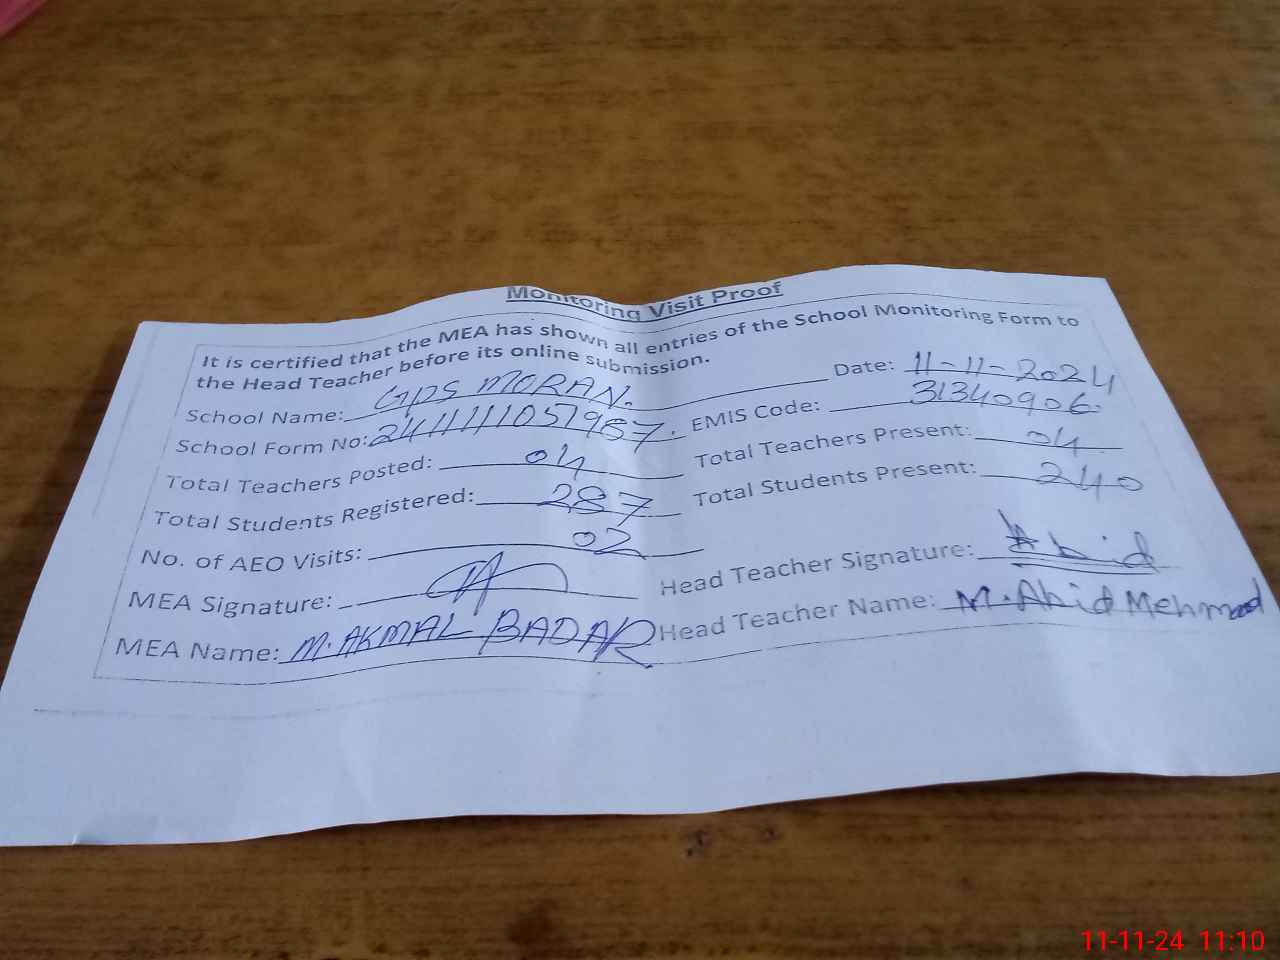 Monitoring Visit Proof
It is certified that the MEA has shown all entries of the School Monitoring Form to
the Head Teacher before its online submission.
School Name: GPS MORAN. Date: 11-11-2024
School Form No: 2411111051987. EMIS Code: 31340906
Total Teachers Posted: 04 Total Teachers Present: 04
Total Students Registered: 287 Total Students Present: 240
No. of AEO Visits: 02
MEA Signature: Head Teacher Signature: Abid
MEA Name: M. AKMAL BADAR Head Teacher Name: M. Abid Mehmood
11-11-24 11:10